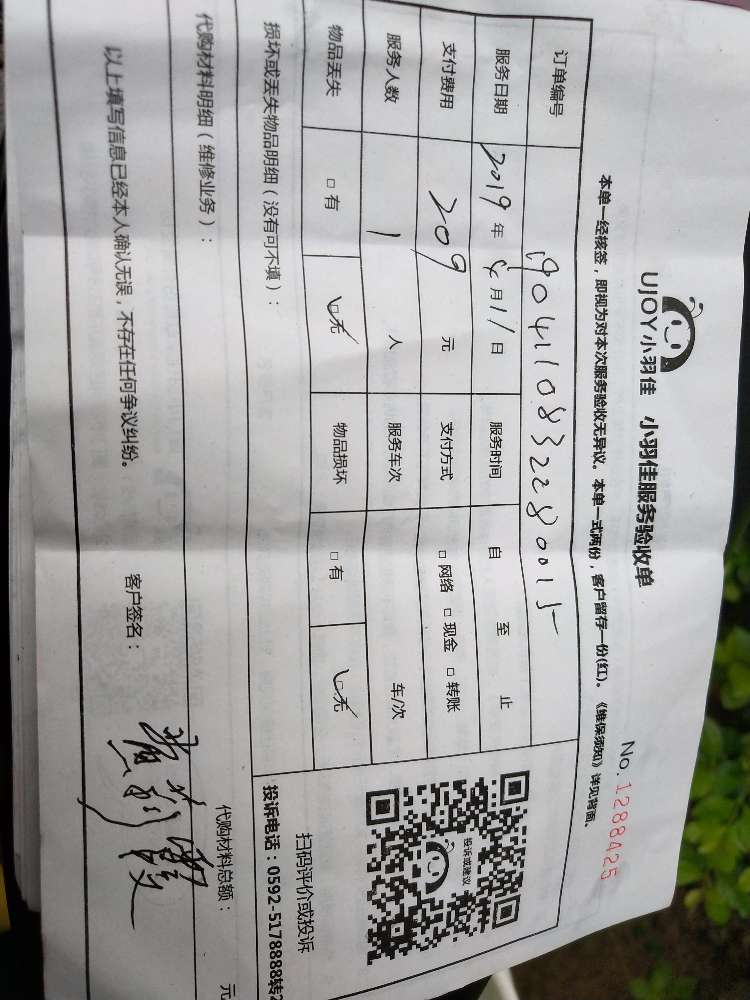 UJOY小羽佳 小羽佳服务验收单
No.1288425
本单一经核签，即视为对本次服务验收无异议。本单一式两份，客户留存一份(红)。《维保须知》详见背面。
订单编号 19041108322280015
服务日期 2019年4月11日 服务时间 自 至 止
支付费用 209元 支付方式 □网络 □现金 □转账
服务人数 1 人 服务车次 车/次
物品丢失 □有 ☑无 物品损坏 □有 ☑无
投诉或建议
扫码评价或投诉
损坏或丢失物品明细（没有可不填）：
投诉电话：0592-5178888转2
代购材料明细（维修业务）：
代购材料总额： 元
以上填写信息已经本人确认无误，不存在任何争议纠纷。 客户签名：